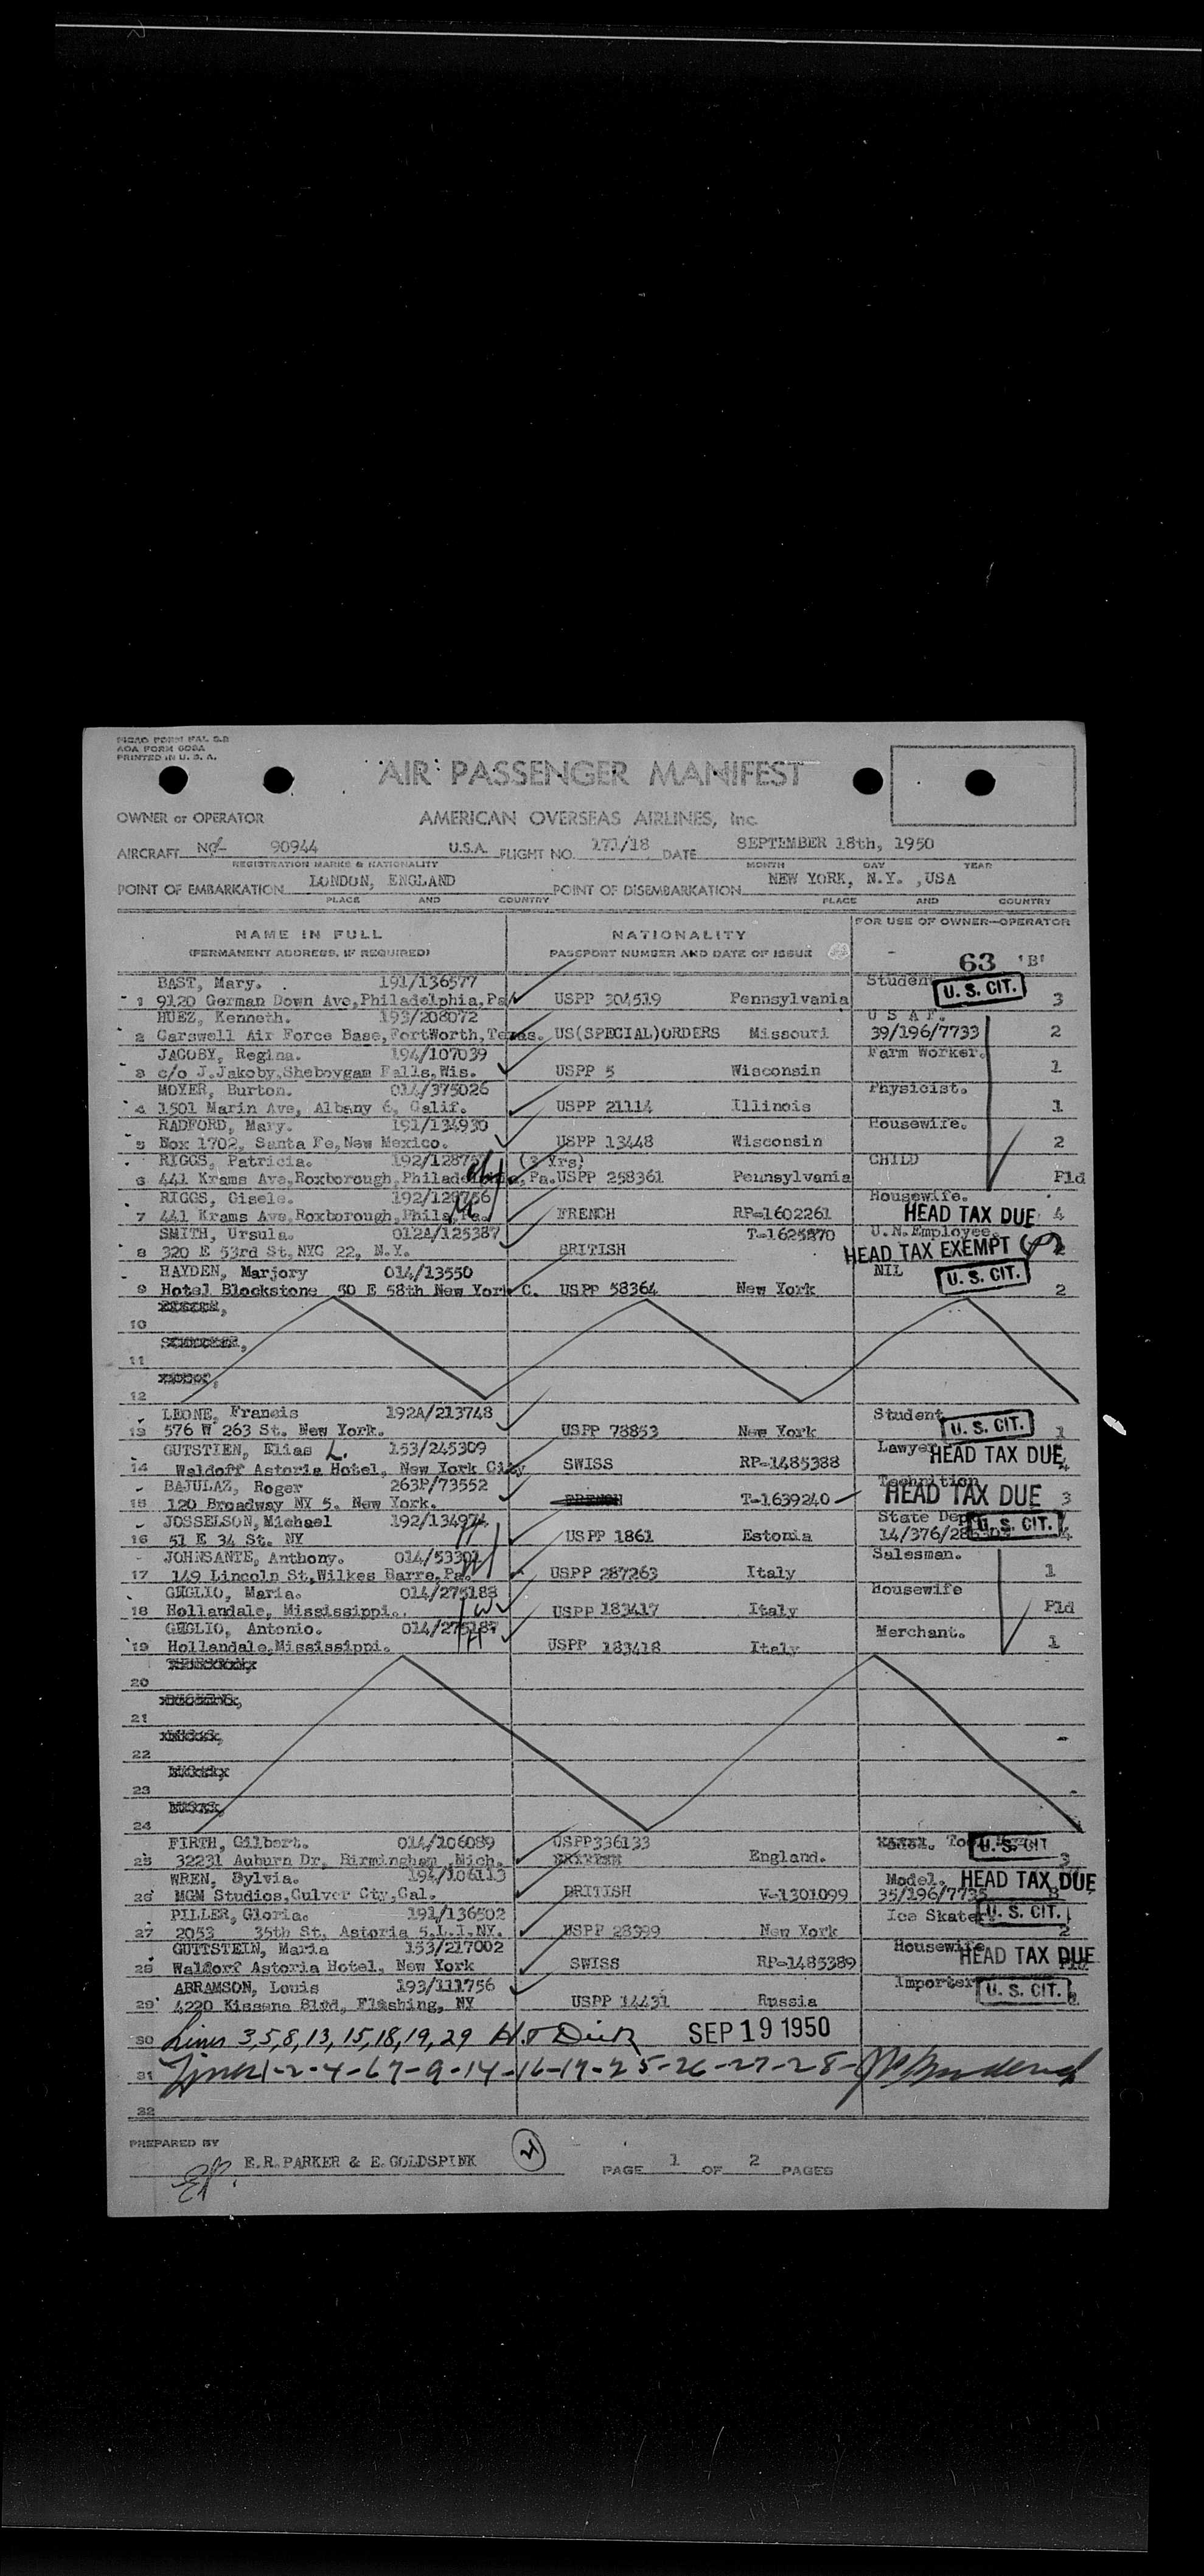 AOA FORM 609A
PRINTED IN U. S. A.
AIR PASSENGER MANIFEST
OWNER or OPERATOR AMERICAN OVERSEAS AIRLINES, Inc.
AIRCRAFT 90944 U.S.A. FLIGHT NO. 171/18 DATE SEPTEMBER 18th, 1950
REGISTRATION MARKS & NATIONALITY MONTH DAY YEAR
POINT OF EMBARKATION LONDON, ENGLAND POINT OF DISEMBARKATION NEW YORK, N.Y. ,USA
PLACE AND COUNTRY PLACE AND COUNTRY
NAME IN FULL NATIONALITY FOR USE OF OWNER—OPERATOR
(PERMANENT ADDRESS, IF REQUIRED) PASSPORT NUMBER AND DATE OF ISSUE 63 'B'
BAST, Mary. 191/136577 Student
1 9120 German Down Ave,Philadelphia,Pa USPP 304519 Pennsylvania U. S. CIT. 3
HUEZ, Kenneth. 193/208072 U S A F.
2 Carswell Air Force Base,FortWorth,Texas. US(SPECIAL)ORDERS Missouri 39/196/7733 2
JACOBY, Regina. 194/107039 Farm Worker.
3 c/o J.Jakoby,Sheboygam Falls,Wis. USPP 5 Wisconsin 1
MOYER, Burton. 014/375026 Physicist.
4 1501 Marin Ave, Albany 6, Calif. USPP 21114 Illinois 1
RADFORD, Mary. 191/134930 Housewife.
5 Box 1702, Santa Fe,New Mexico. USPP 13448 Wisconsin 2
RIGGS, Patricia. (3 Yrs) CHILD
6 441 Krams Ave,Roxborough,Philadelphia,Pa. USPP 258361 Pennsylvania Fld
RIGGS, Gisele. 192/128756 Housewife.
7 441 Krams Ave,Roxborough,Phila,Pa. FRENCH RP-1602261 HEAD TAX DUE 4
SMITH, Ursula. 012A/125387 T-1625870 U.N.Employee.
8 320 E 53rd St,NYC 22, N.Y. BRITISH HEAD TAX EXEMPT
HAYDEN, Marjory 014/13550 NIL U. S. CIT.
9 Hotel Blockstone 50 E 58th New York C. USPP 58364 New York 2
10
11
12
LEONE, Francis 192A/213748 Student
13 576 W 263 St. New York. USPP 78853 New York U. S. CIT. 1
GUTSTIEN, Elias L. 153/245309 Lawyer
14 Waldoff Astoria Hotel, New York City SWISS RP-1485388 HEAD TAX DUE 4
BAJULAZ, Roger 263P/73552 Technition
15 120 Broadway NY 5. New York. FRENCH T-1639240 HEAD TAX DUE 3
JOSSELSON, Michael 192/134974 State Dep
16 51 E 34 St. NY USPP 1861 Estonia U. S. CIT. 4
JOHNSANTE, Anthony. 014/53301 Salesman.
17 149 Lincoln St,Wilkes Barre,Pa. USPP 287263 Italy 1
GEGLIO, Maria. 014/275188 Housewife
18 Hollandale, Mississippi. USPP 183417 Italy Fld
GEGLIO, Antonio. 014/275187 Merchant.
19 Hollandale,Mississippi. USPP 183418 Italy 1
20
21
22
23
24
FIRTH, Gilbert. 014/106089 USPP336133 U. S. CIT
25 32231 Auburn Dr, Birmingham ,Mich. BRITISH England. 3
WREN, Sylvia. 194/106113 Model. HEAD TAX DUE
26 MGM Studios,Culver Cty,Cal. BRITISH V-1301099 35/196/7735
PILLER, Gloria. 191/136502 Ice Skater. U. S. CIT.
27 2053 35th St, Astoria 5,L.I,NY. USPP 28399 New York 2
GUTTSTEIN, Maria 153/217002 Housewife
28 Waldorf Astoria Hotel, New York SWISS RP-1485389 HEAD TAX DUE
ABRAMSON, Louis 193/111756 Importer
29 4220 Kissena Blvd, Flushing, NY USPP 14431 Russia U. S. CIT.
30 Lines 3,5,8,13,15,18,19,29 SEP 19 1950
31 Lines 1-2-4-67-9-14-16-17-25-26-27-28-
32
PREPARED BY
E.R.PARKER & E.GOLDSPINK PAGE 1 OF 2 PAGES